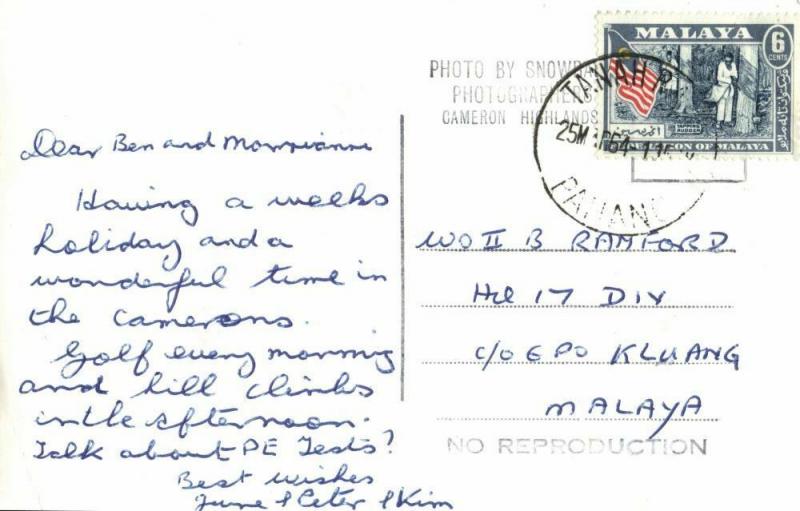 Dear Ben and
Having a weeks
holiday and a
wonderful time in
the camerons.
Golf every morning
and hill climbs
in the afternoon.
Talk about PE Tests?
Best wishes
June & Peter & Kim
PHOTO BY
PHOTOGRAPHERS
CAMERON HIGHLANDS
MALAYA
6
CENTS
TAPPING
RUBBER
OF MALAYA
TANAH
25M 64
PAHANG
WO II B RAMFORD
HQ 17 DIV
C/O G PO KLUANG
MALAYA
NO REPRODUCTION